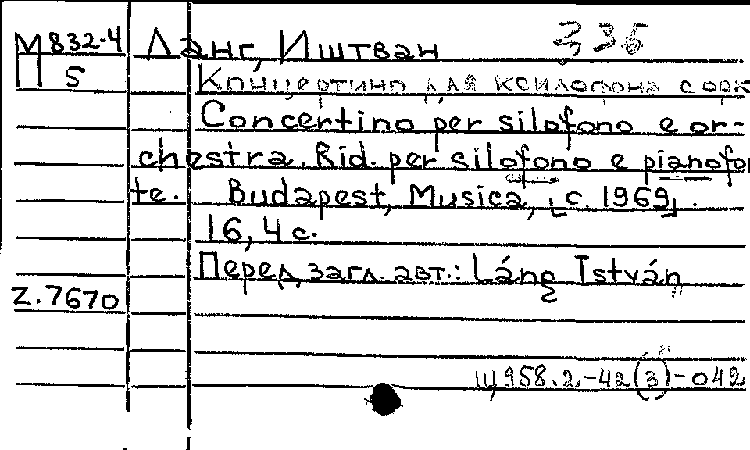 М832-4 Ланг, Иштван 335
П 5 Концертино для ксилофона с орк
Concertino per silofono e or-
chestra. Rid. per silofono e pianofor
te. Budapest, Musica, [c 1969].
16, 4 с.
Перед загл. авт.: Láng István
Z.7670
Щ958.2-42(3)-042